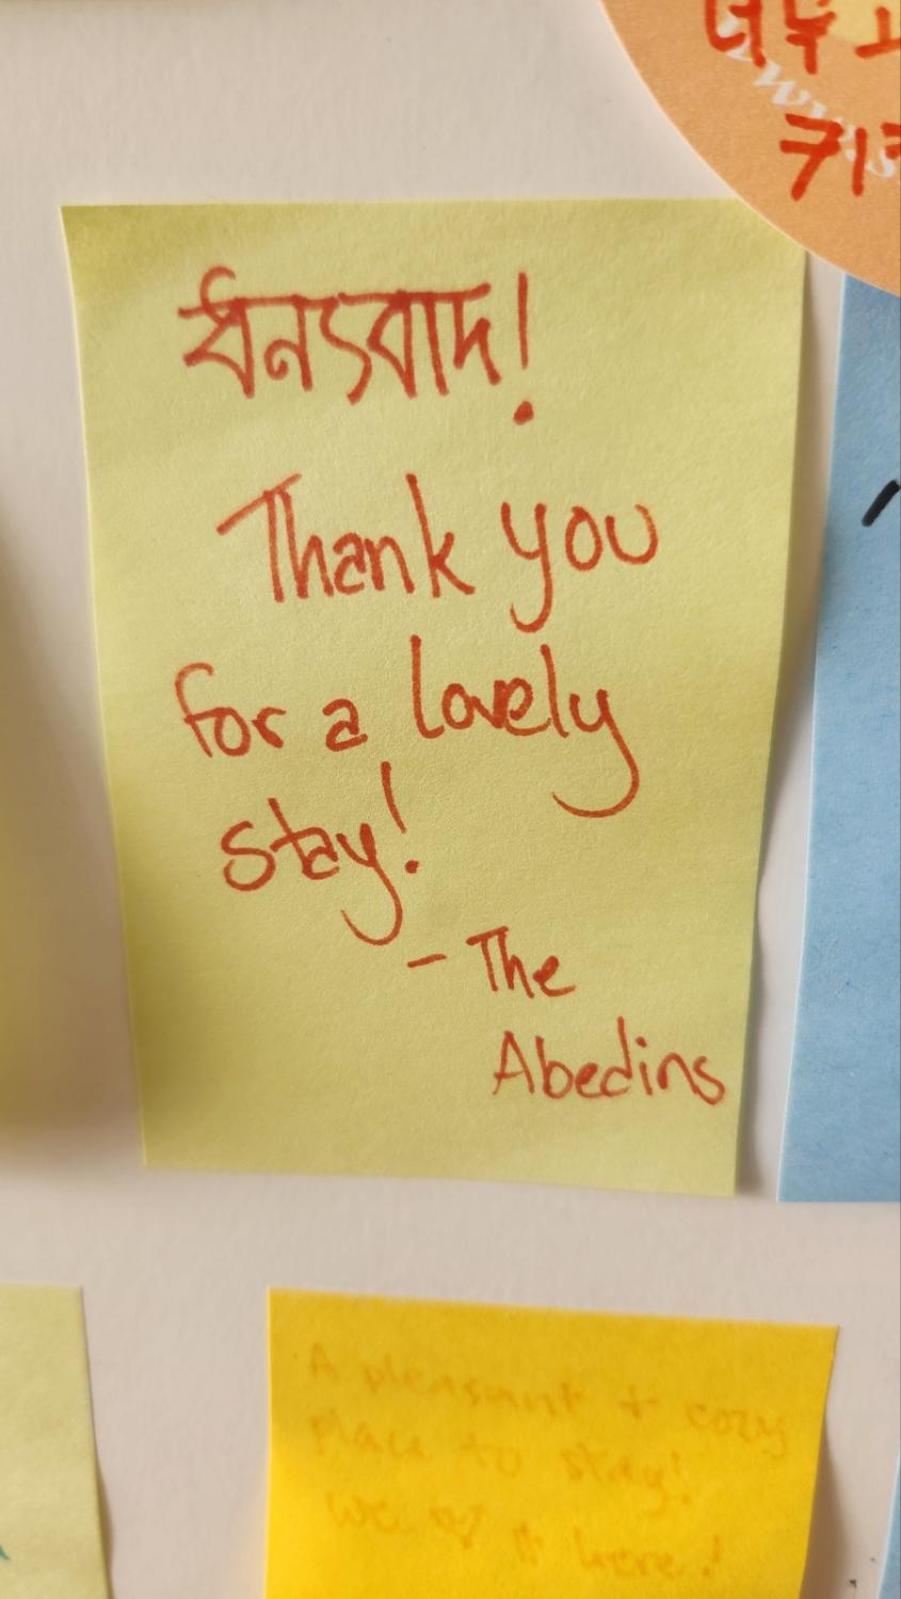 너무 고
키
ধন্যবাদ!
Thank you
for a lovely
stay!
- The
Abedins
A pleasant + cozy
place to stay!
We ♡ it here!